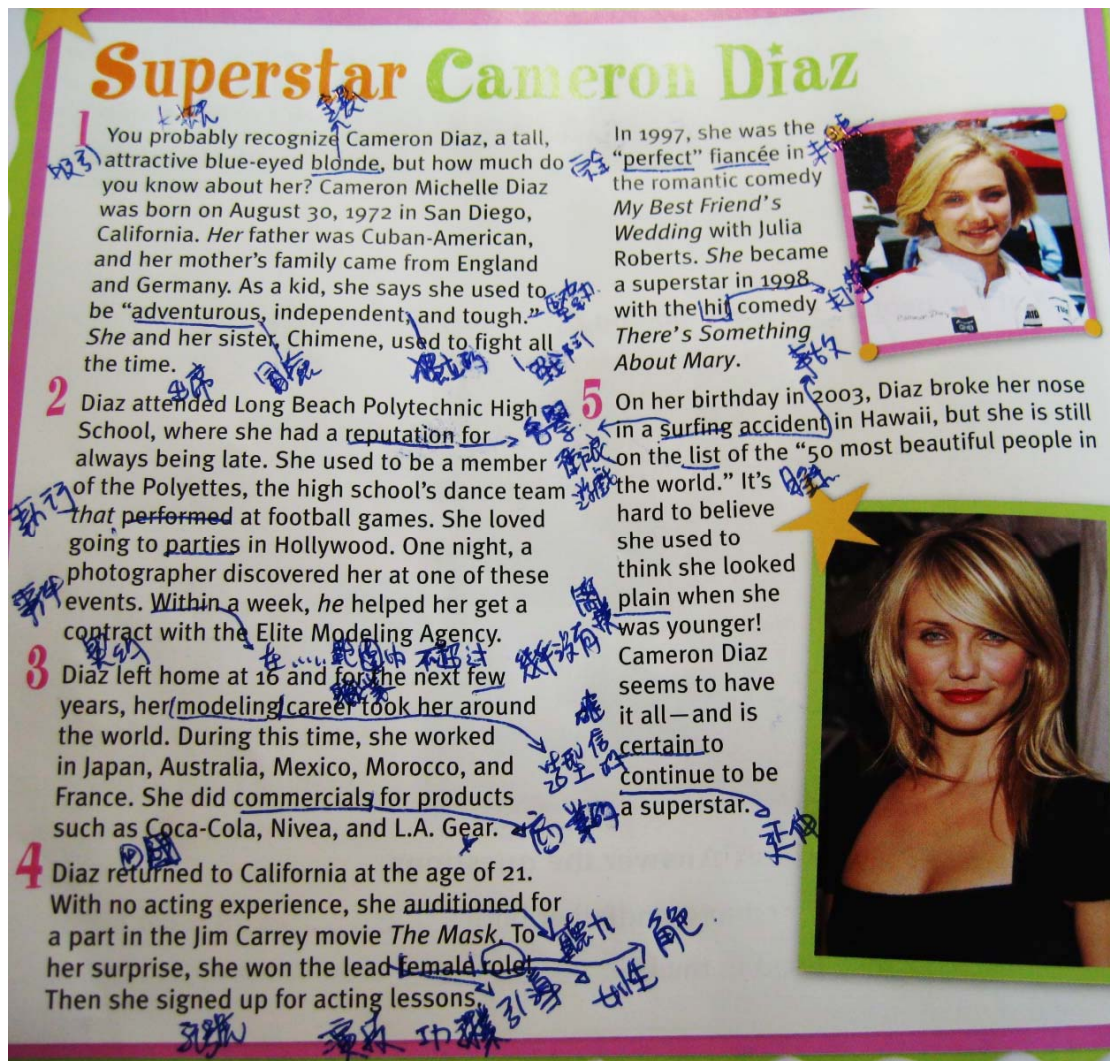 Superstar Cameron Diaz
1
You probably recognize Cameron Diaz, a tall,
attractive blue-eyed blonde, but how much do
you know about her? Cameron Michelle Diaz
was born on August 30, 1972 in San Diego,
California. Her father was Cuban-American,
and her mother's family came from England
and Germany. As a kid, she says she used to
be “adventurous, independent, and tough.”
She and her sister, Chimene, used to fight all
the time.
吸引
冒險
出席
2
Diaz attended Long Beach Polytechnic High
School, where she had a reputation for
always being late. She used to be a member
of the Polyettes, the high school's dance team
that performed at football games. She loved
going to parties in Hollywood. One night, a
photographer discovered her at one of these
events. Within a week, he helped her get a
contract with the Elite Modeling Agency.
事件
契約
在.....範圍內 不超过
幾乎沒有
3
Diaz left home at 16 and for the next few
years, her modeling career took her around
the world. During this time, she worked
in Japan, Australia, Mexico, Morocco, and
France. She did commercials for products
such as Coca-Cola, Nivea, and L.A. Gear.
商業的
回國
4
Diaz returned to California at the age of 21.
With no acting experience, she auditioned for
a part in the Jim Carrey movie The Mask. To
her surprise, she won the lead female role!
Then she signed up for acting lessons.
聽力
角色
女性
引導
In 1997, she was the
“perfect” fiancée in
the romantic comedy
My Best Friend's
Wedding with Julia
Roberts. She became
a superstar in 1998
with the hit comedy
There's Something
About Mary.
完全
打擊
事故
5
On her birthday in 2003, Diaz broke her nose
in a surfing accident in Hawaii, but she is still
on the list of the “50 most beautiful people in
the world.” It's
hard to believe
she used to
think she looked
plain when she
was younger!
Cameron Diaz
seems to have
it all—and is
certain to
continue to be
a superstar.
名譽
衝浪